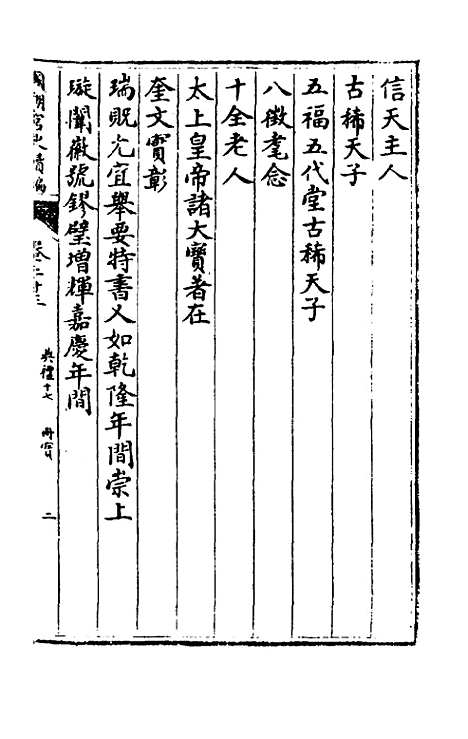 信天主人
古稀天子
五福五代堂古稀天子
八徵耄念
十全老人
太上皇帝諸大寶著在
奎文寶彰
瑞貺尤宜舉要特書又如乾隆年間崇上
璇闈徽號鏐璧增輝嘉慶年間
國朝宮史續編
卷二十三
典禮十七
冊寶
二